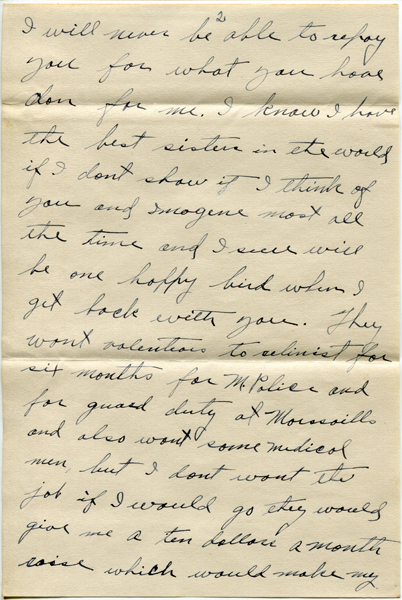 2
I will never be able to repay
you for what you have
don for me. I know I have
the best sisters in the world
if I dont show it I think of
you and Imogene most all
the time and I sure will
be one happy bird when I
get back with you. They
want valentiors to relinist for
six months for M. Police and
for guard duty at Marsaills
and also want some medical
men, but I dont want the
job if I would go they would
give me a ten dollar a month
raise which would make my